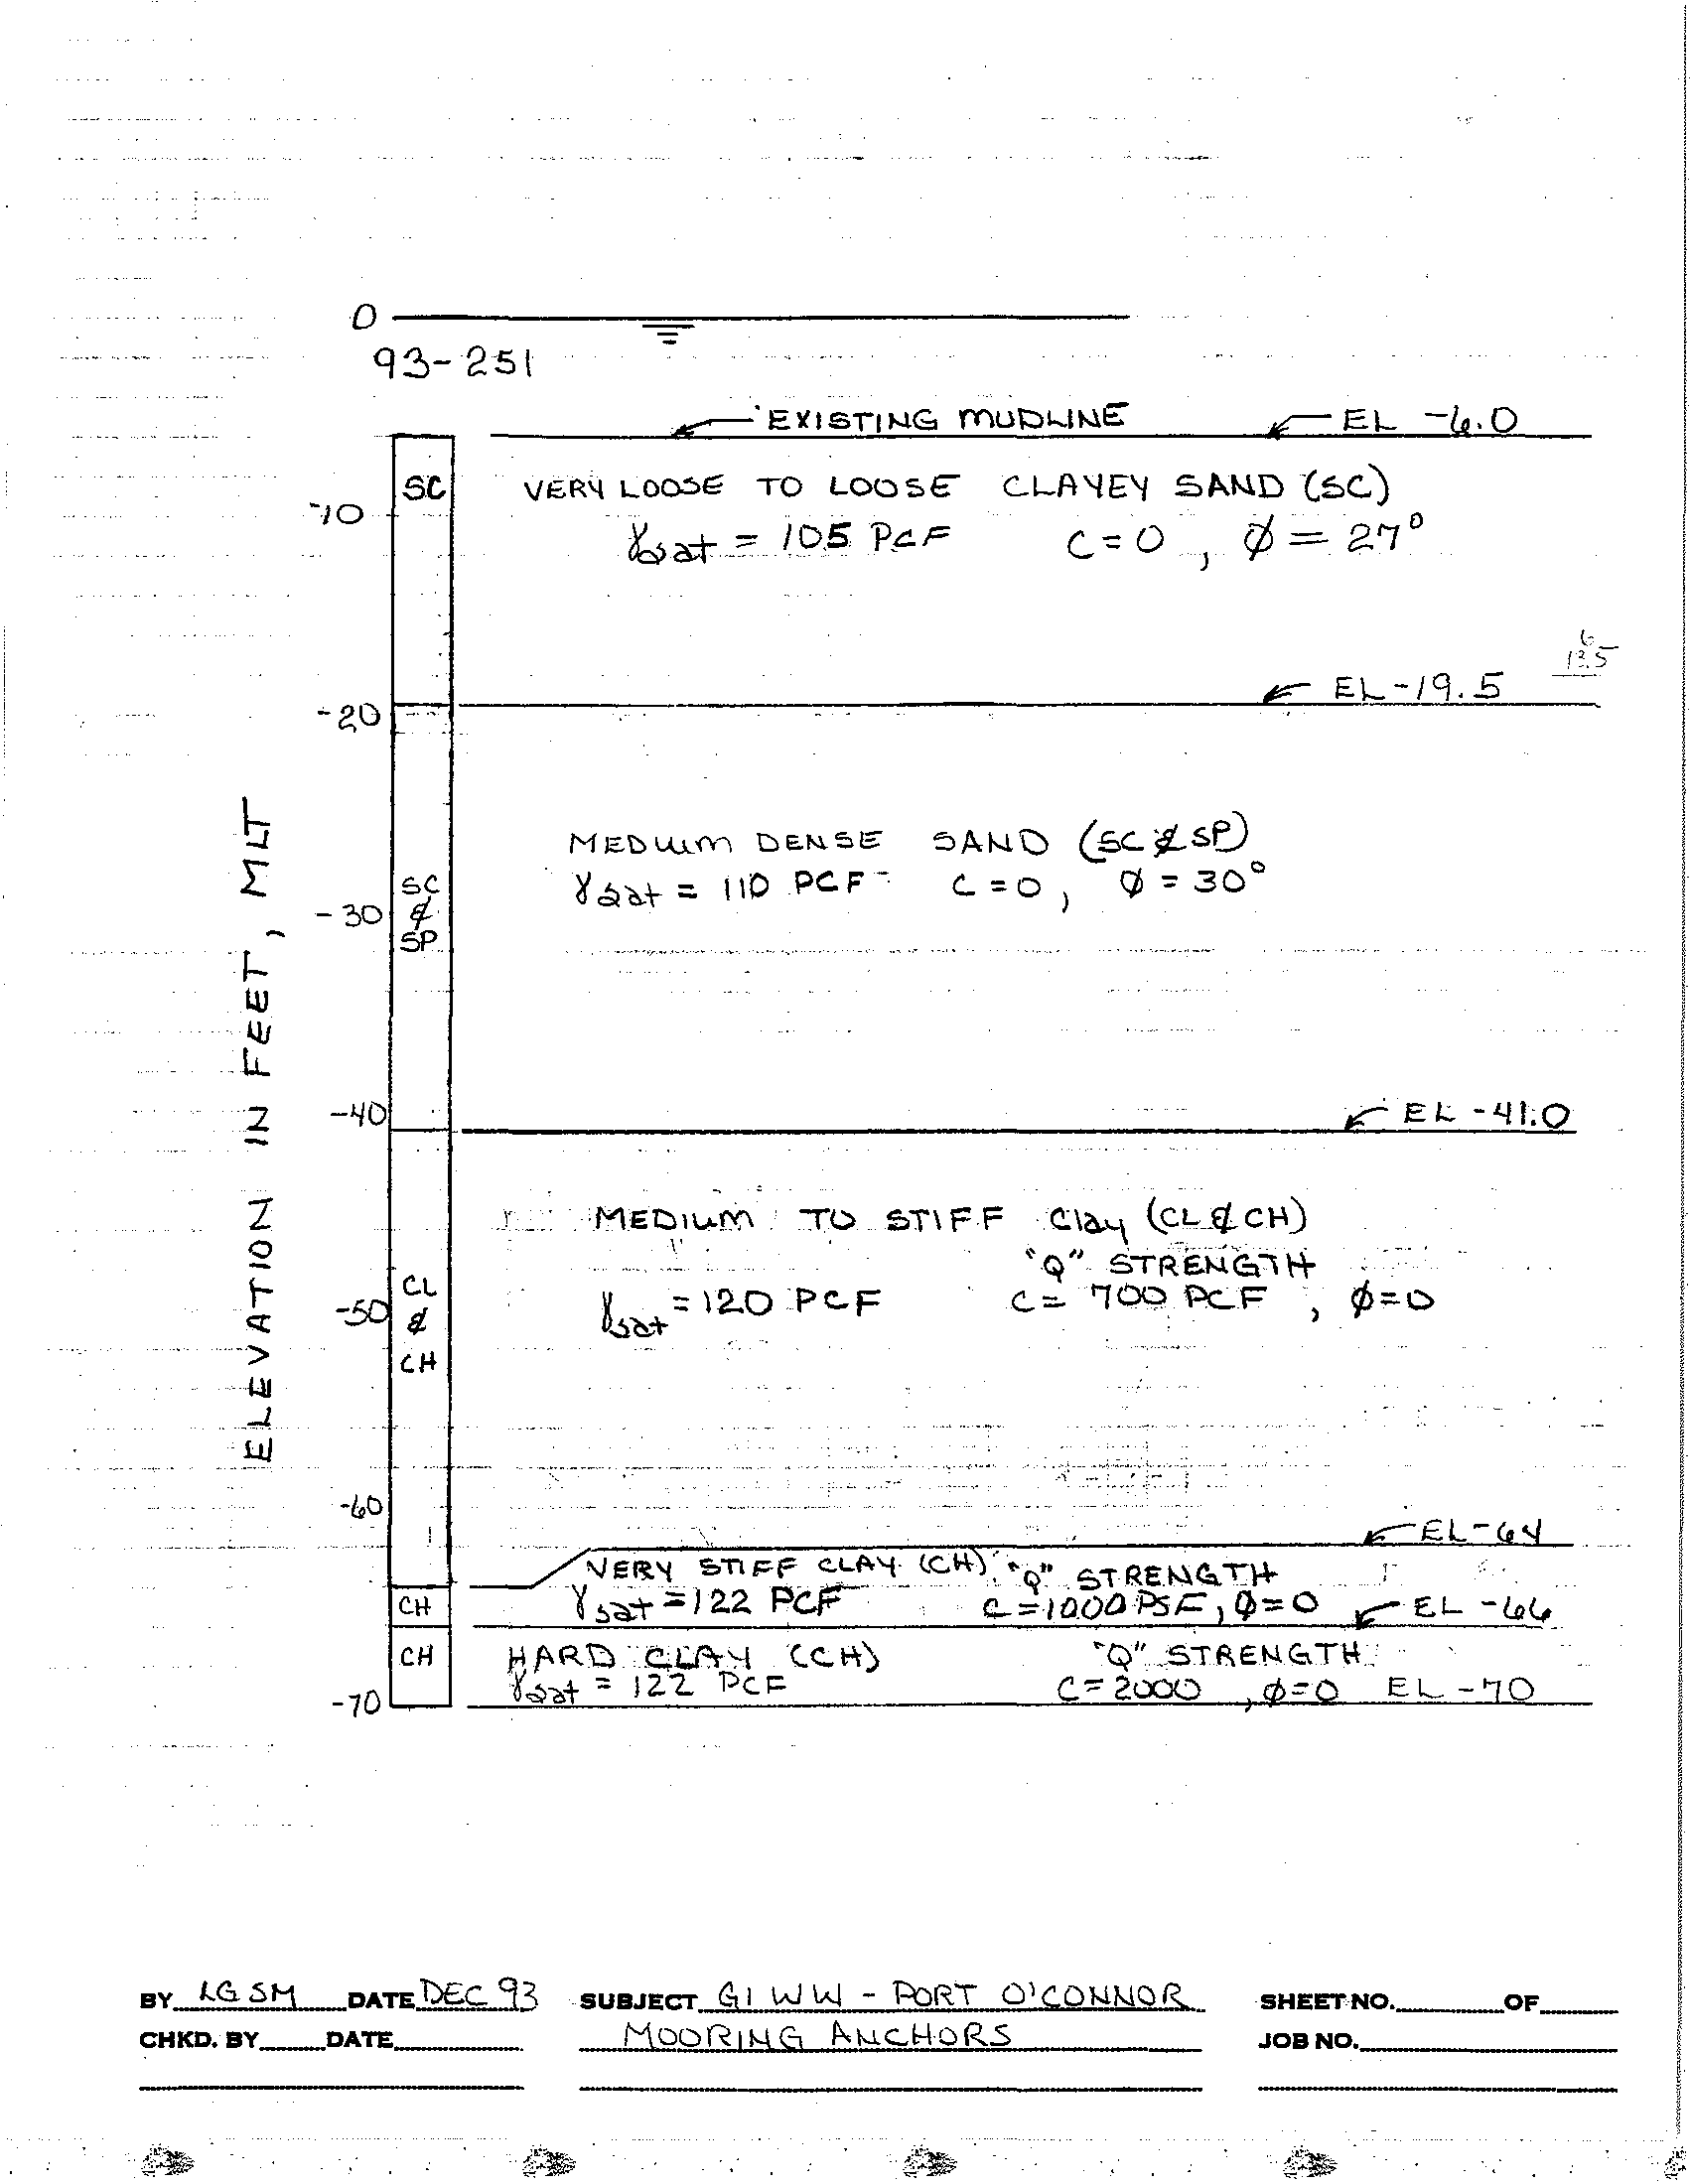 0
93-251
EXISTING MUDLINE EL -6.0
SC VERY LOOSE TO LOOSE CLAYEY SAND (SC)
-10 γsat = 105 PCF C=0, Ø = 27°
6
13.5
EL -19.5
-20
MEDIUM DENSE SAND (SC & SP)
γsat = 110 PCF C=0, Ø = 30°
SC
-30 &
SP
ELEVATION IN FEET, MLT
-40 EL -41.0
MEDIUM TO STIFF Clay (CL & CH)
"Q" STRENGTH
γsat = 120 PCF C= 700 PCF, Ø=0
CL
-50 &
CH
-60
EL -64
VERY STIFF CLAY (CH) "Q" STRENGTH
CH γsat = 122 PCF C=1000 PSF, Ø=0 EL -66
CH HARD CLAY (CH) "Q" STRENGTH
γsat = 122 PCF C=2000, Ø=0 EL -70
-70
BY LGSM DATE DEC 93 SUBJECT GIWW - PORT O'CONNOR SHEET NO. OF
CHKD. BY DATE MOORING ANCHORS JOB NO.